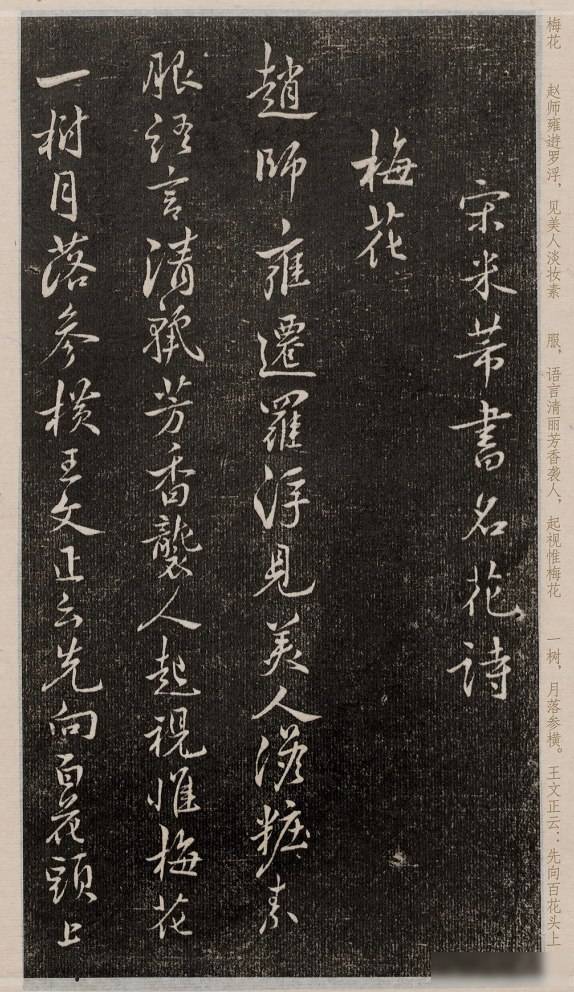 梅花 赵师雍遊罗浮，见美人淡妆素 服，语言清丽芳香袭人，起视惟梅花 一树，月落参横。王文正云：先向百花头上
宋米芾書名花詩
梅花
趙師雍遷羅浮見美人澹粧素
服語言清麗芳香襲人起視惟梅花
一樹月落參橫王文正云先向百花頭上